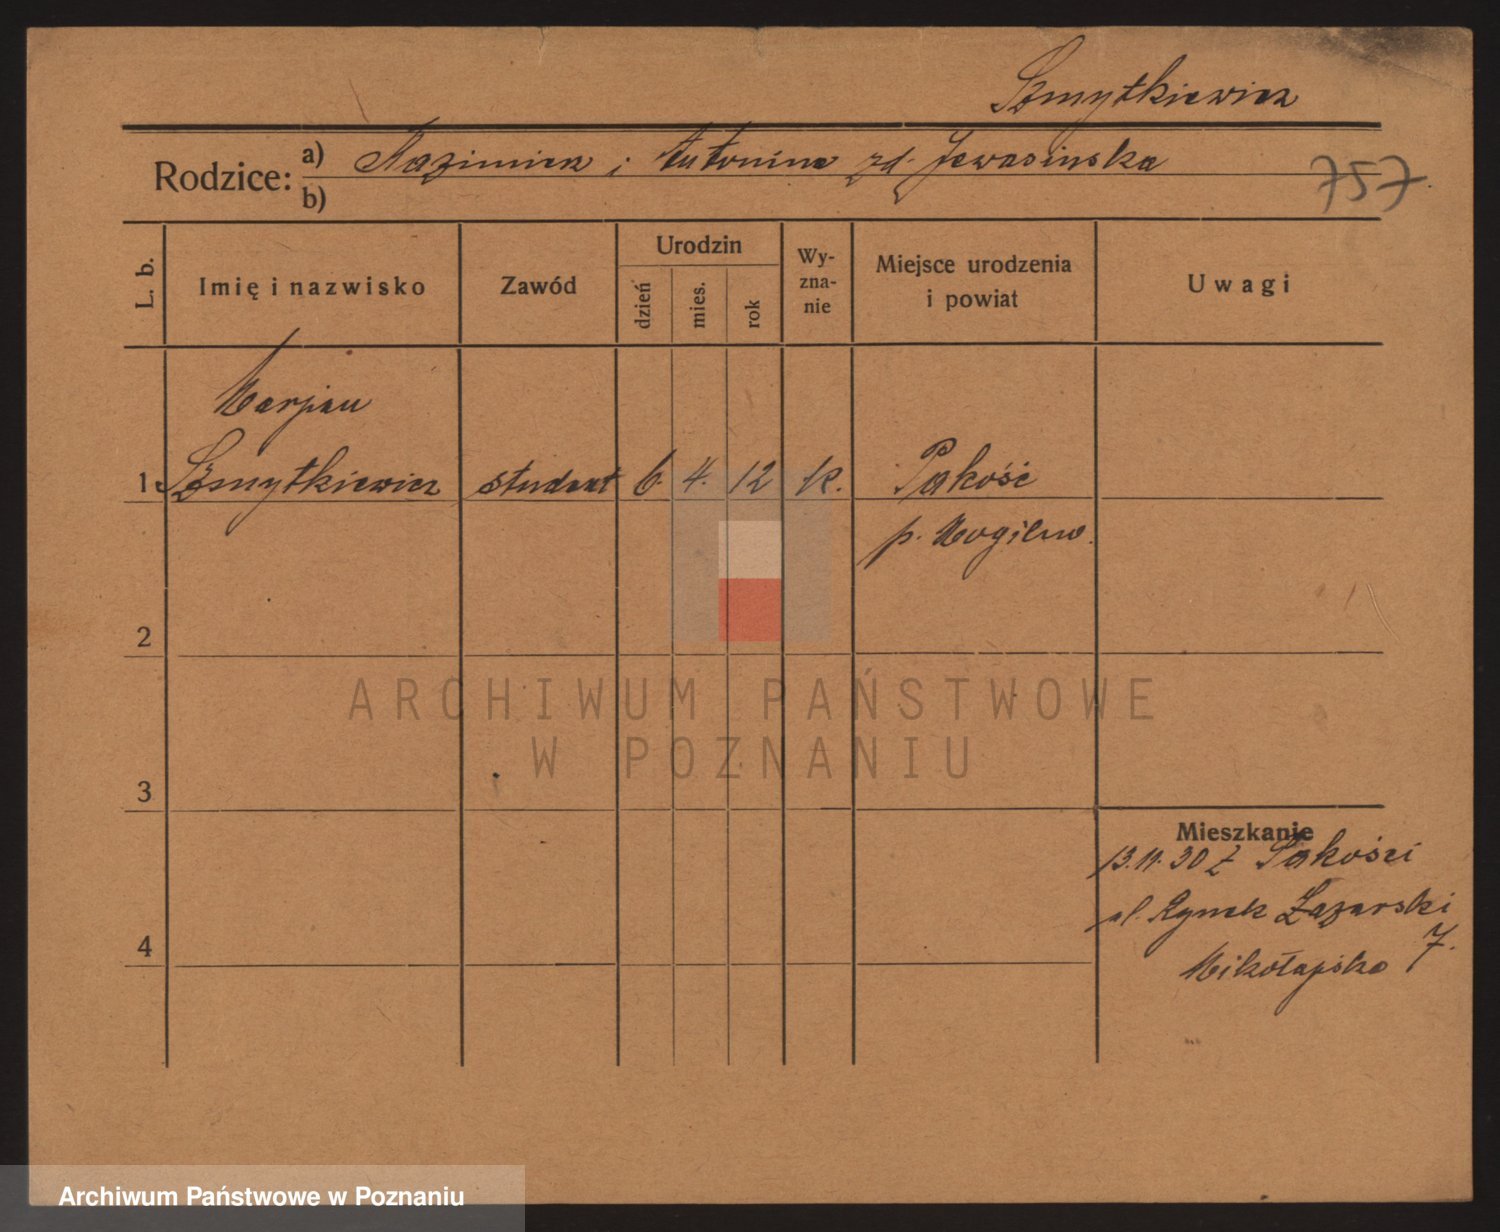 Szmytkiewicz
Rodzice: a) Kazimierz i Antonina zd. Jewasińska
b)
757
L. b.
Imię i nazwisko
Zawód
Urodzin
dzień
mies.
rok
Wy-
zna-
nie
Miejsce urodzenia
i powiat
Uwagi
Marjan
1 Szmytkiewicz student 6. 4. 12 k. Pakość
p. Mogilno.
2
3
4
Mieszkanie
13.11.30 z Pakości
ul. Rynek Łazarski
7.
Mikołajska
ARCHIWUM PAŃSTWOWE
W POZNANIU
Archiwum Państwowe w Poznaniu